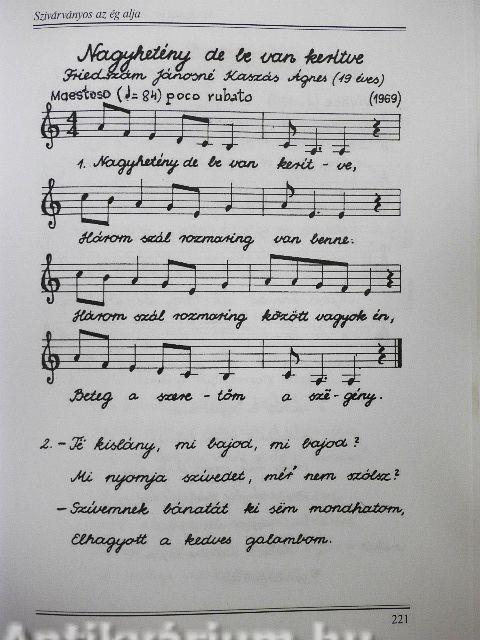 Szivárványos az ég alja
Nagyhetény de be van kerítve
Friedszám Jánosné Kaszás Ágnes (19 éves)
Maestoso (♩= 84) poco rubato (1969)
1. Nagyhetény de be van kerít - ve,
Három szál rozmaring van benne.
Három szál rozmaring között vagyok én,
Beteg a szere - tőm a szë - gény.
2. - Të kislány, mi bajod, mi bajod?
Mi nyomja szívedet, mér' nem szólsz?
- Szívemnek bánatát ki sëm mondhatom,
Elhagyott a kedves galambom.
221
Antikvárium.hu